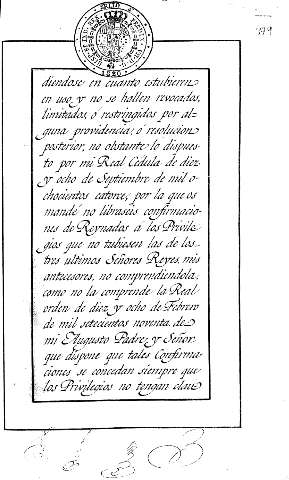 diendose en cuanto estubieren
en uso, y no se hallen revocados,
limitados, ó restringidos por al-
guna providencia, ó resolucion
posterior, no obstante lo dispues-
to por mi Real Cédula de diez
y ocho de Septiembre de mil o-
chocientos catorce, por la que os
mandé no libraseis confirmacio-
nes de Reynados a los Privile-
gios que no tubiesen las de los
tres ultimos Señores Reyes, mis
antecesores, no comprendiendola,
como no la comprende la Real
orden de diez y ocho de Febrero
de mil setecientos noventa de
mi Augusto Padre y Señor
que dispone que tales Confirma-
ciones se concedan siempre que
los Privilegios no tengan clau